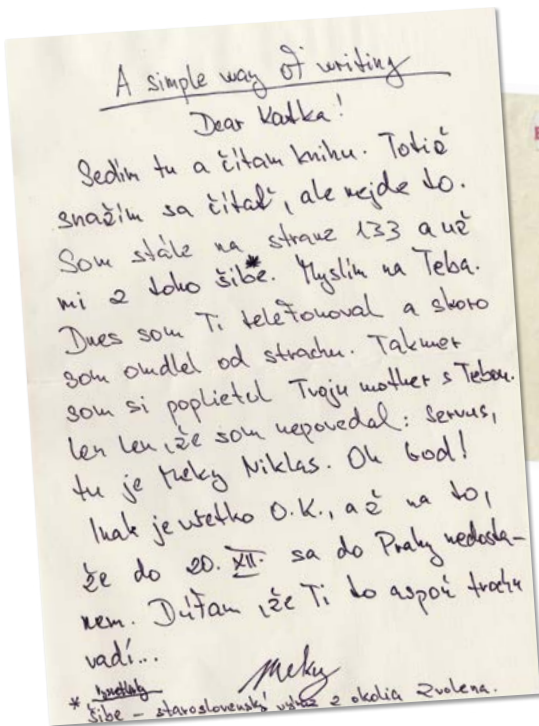 A simple way of writing
Dear Katka!
Sedím tu a čítam knihu. Totiž
snažím sa čítať, ale nejde to.
Som stále na strane 133 a už
mi z toho šibe.* Myslím na Teba.
Dnes som Ti telefonoval a skoro
som omdlel od strachu. Takmer
som si poplietol Tvoju mother s Tebou.
Len len, že som nepovedal: Servus,
tu je Meky Niklas. Oh God!
Inak je všetko O.K., až na to,
že do 20. XII. sa do Prahy nedosta-
nem. Dúfam, že Ti to aspoň trochu
vadí...
Meky
* šibe – staroslovenský výraz z okolia Zvolena.